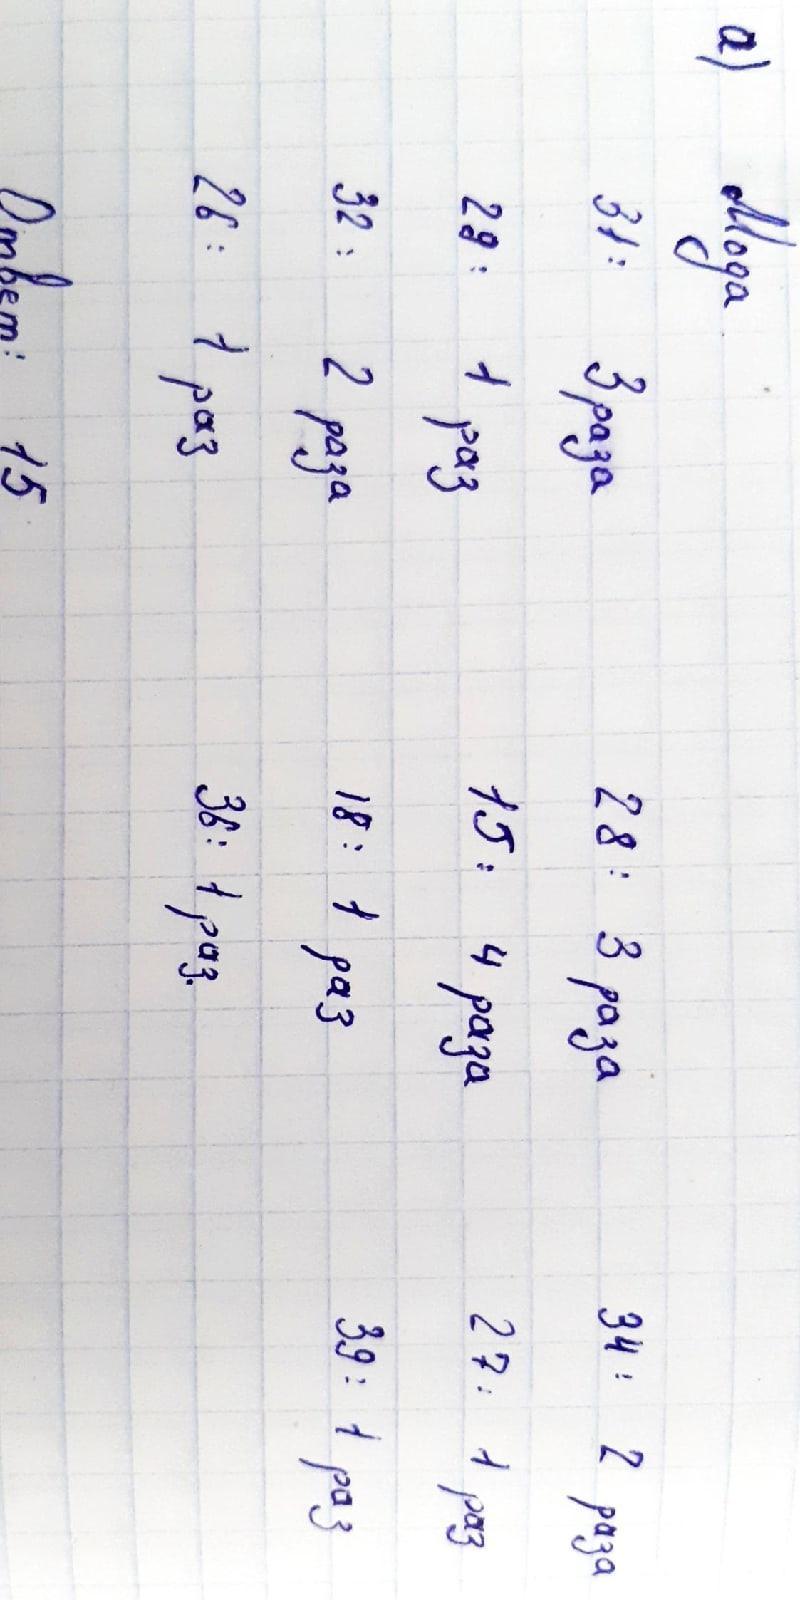 а) Мода
31: 3 раза 28: 3 раза 34: 2 раза
29: 1 раз 15: 4 раза 27: 1 раз
32: 2 раза 18: 1 раз 39: 1 раз
26: 1 раз 36: 1 раз.
Ответ: 15